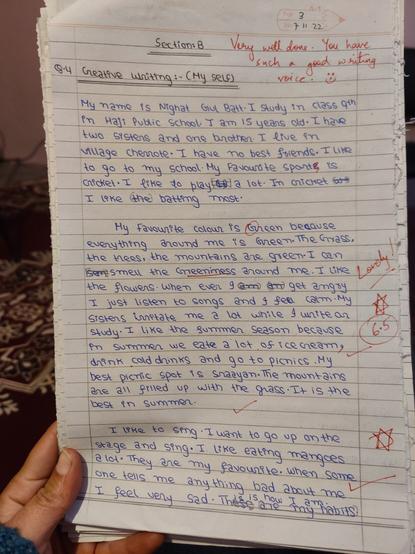 3
7 11 22
Section:B
Very well done. You have
such a good writing
voice.
Q.4 Creative Writing:- (My self)
My name is Nighat Gul Batt. I study in class 9th
in Haji Public School I am 15 years old. I have
two sisters and one brother I live in
village Chenote. I have no best friends. I like
to go to my school. My favourite sports is
cricket. I like to play a lot. In cricket
I like the batting most.
My favourite colour is Green because
everything around me is Green. The Grass,
the trees, the mountains are green. I can
smell the Greeniness around me. I like
the flowers. when ever I get angry
I just listen to songs and I feel calm. My
sisters irritate me a lot while I write or
study. I like the summer season because
in summer we eat a lot of icecream,
drink cold drinks and go to picnics. My
best picnic spot is Snaayan. The mountains
are all filled up with the grass. It is the
best in summer.
Lovely!
6.5
I like to sing. I want to go up on the
stage and sing. I like eating mangoes
a lot. They are my favourite. when some
one tells me anything bad about me
I feel very sad. This is how I am.
my habits